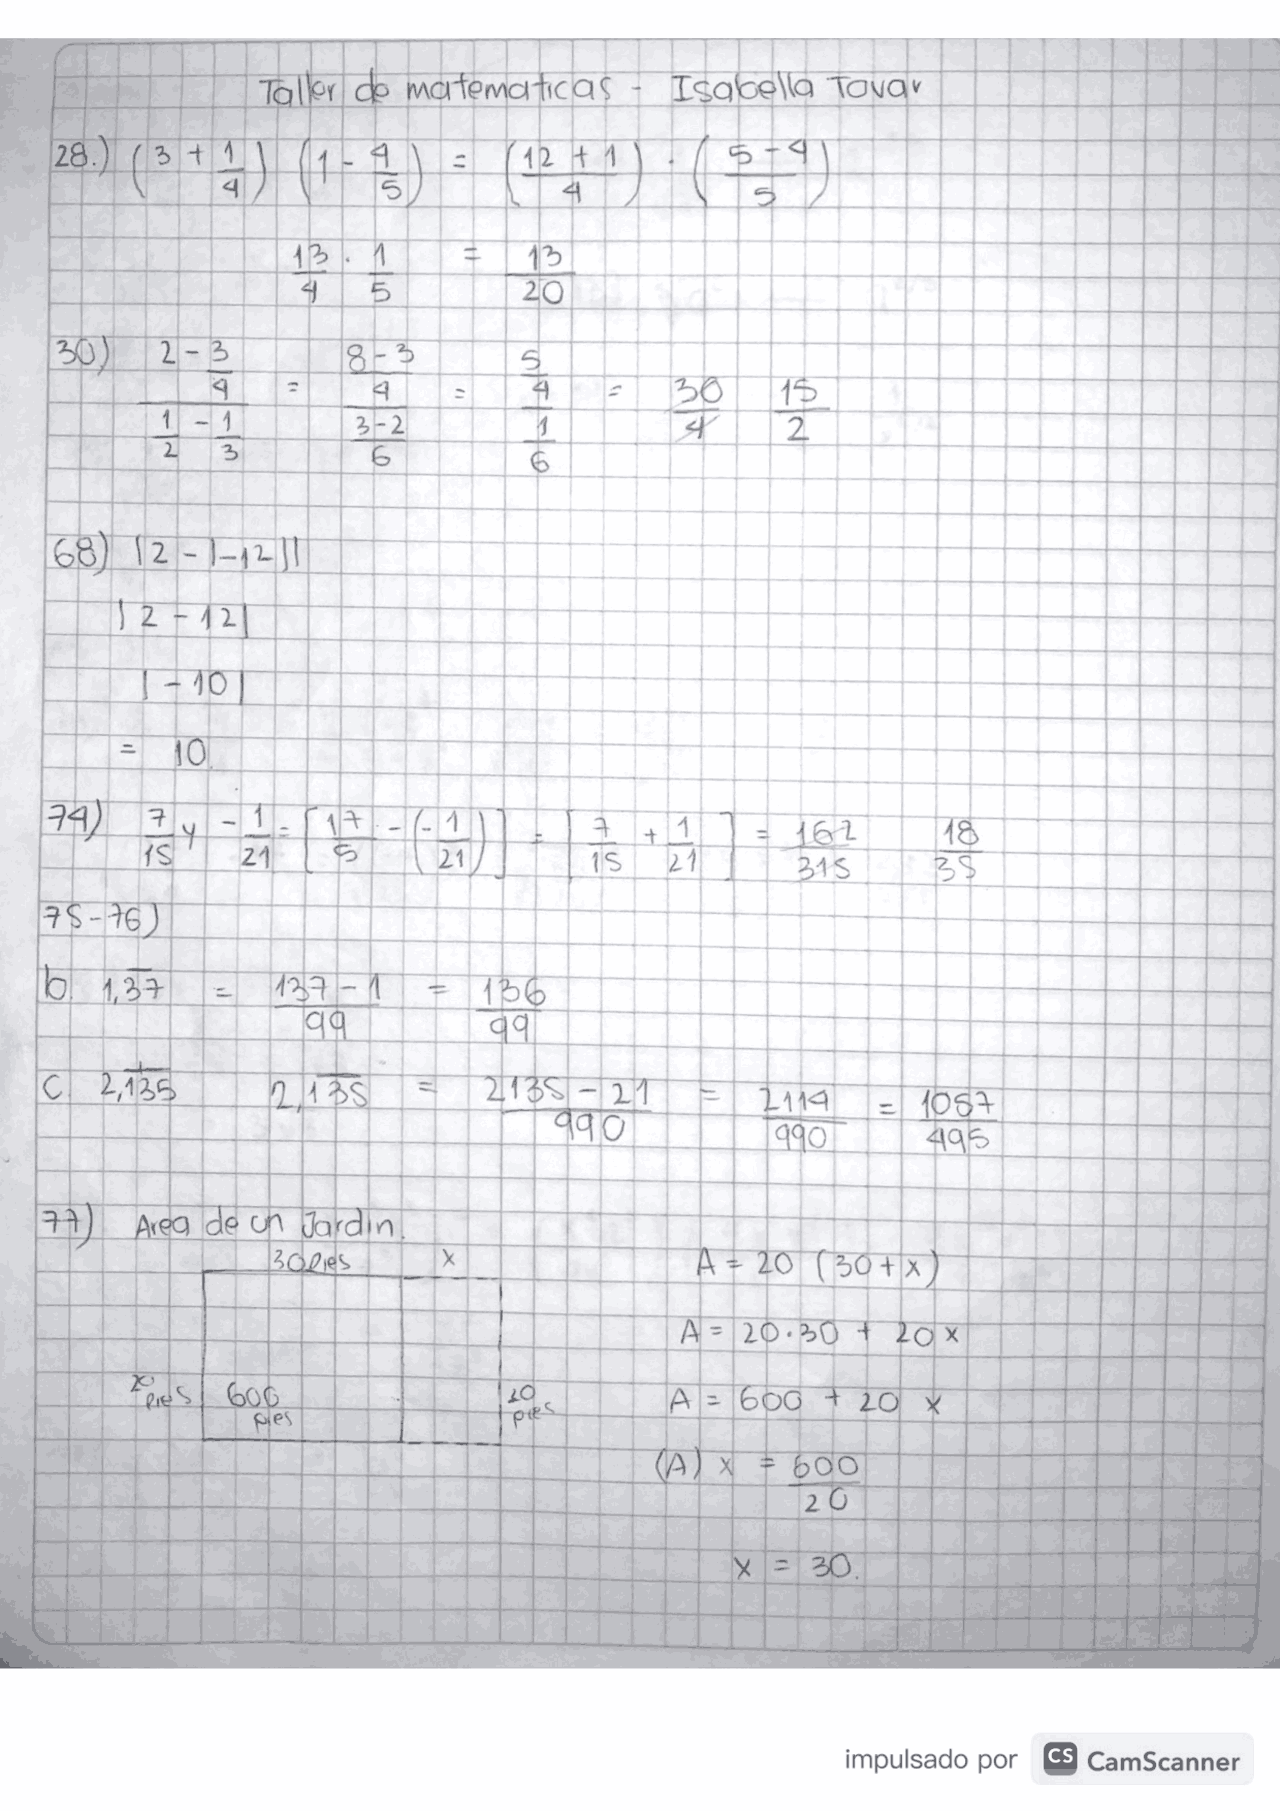 Taller de matematicas - Isabella Tovar
28.) (3 + 1/4) (1 - 4/5) = (12 + 1 / 4) · (5 - 4 / 5)
13/4 · 1/5 = 13/20
30) (2 - 3/4) / (1/2 - 1/3) = (8 - 3 / 4) / (3 - 2 / 6) = (5/4) / (1/6) = 30/4 15/2
68) |2 - |-12||
|2 - 12|
|-10|
= 10
74) 7/15 y -1/21 = [17/5 - (-1/21)] = [7/15 + 1/21] = 162/315 18/35
75-76)
b. 1,3̅7̅ = 137 - 1 / 99 = 136/99
c. 2,1̅3̅5̅ 2,13̅5̅ = 2135 - 21 / 990 = 2114/990 = 1057/495
77) Area de un Jardin.
30 pies x
A = 20 (30 + x)
A = 20·30 + 20 x
20 pies 600 pies 20 pies
A = 600 + 20 x
(A) x = 600/20
x = 30.
impulsado por CS CamScanner